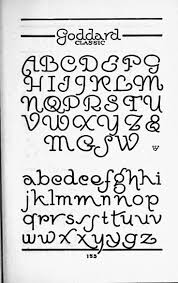 Goddard
CLASSIC
ABCDEFG
HIJKLM
NOPQRST
UVWXYZ&
MGSW
abcdefghi
jklmmnnop
qrrsſſtuvv
uwxxyygz
153